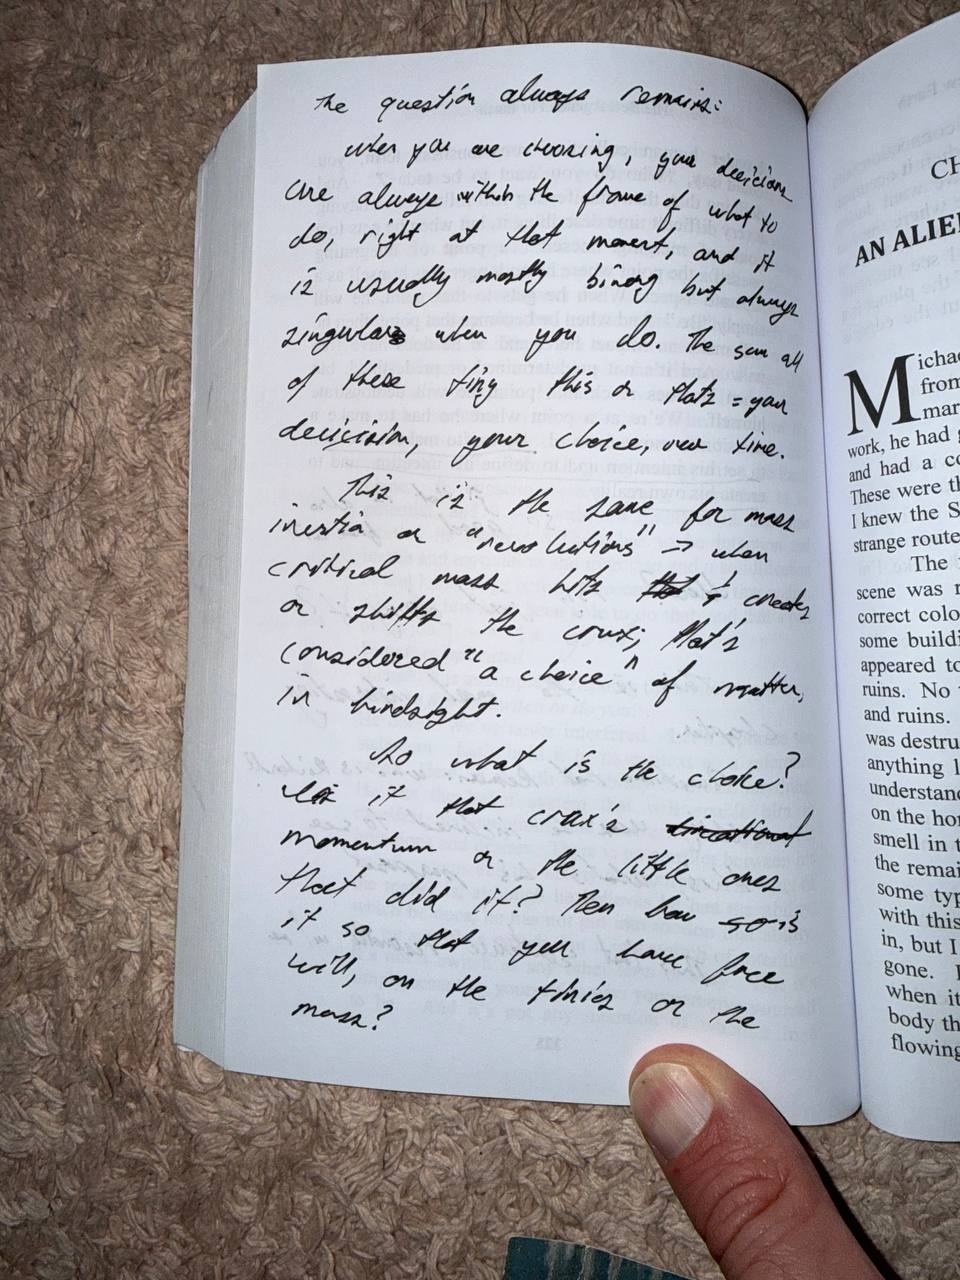 The question always remains:
when you are choosing, your decisions
are always within the frame of what to
do, right at that moment, and it
is usually mostly binary but always
singular when you do. The sum all
of these tiny this or thats = your
decicision, your choice, over time.
This is the same for mass
inertia or "revolutions" → when
critical mass hits & creates
or shifts the crux; that's
considered "a choice" of matter,
in hindsight.
So what is the choice?
Is it that crux's
momentum or the little ones
that did it? Then how is
it so that you have free
will, on the tinies or the
mass?
CH
AN ALIE
Micha
from
mar
work, he had g
and had a co
These were th
I knew the S
strange route
The
scene was r
correct colo
some buildi
appeared to
ruins. No
and ruins.
was destru
anything l
understand
on the hor
smell in t
the remai
some typ
with this
in, but I
gone.
when it
body th
flowing